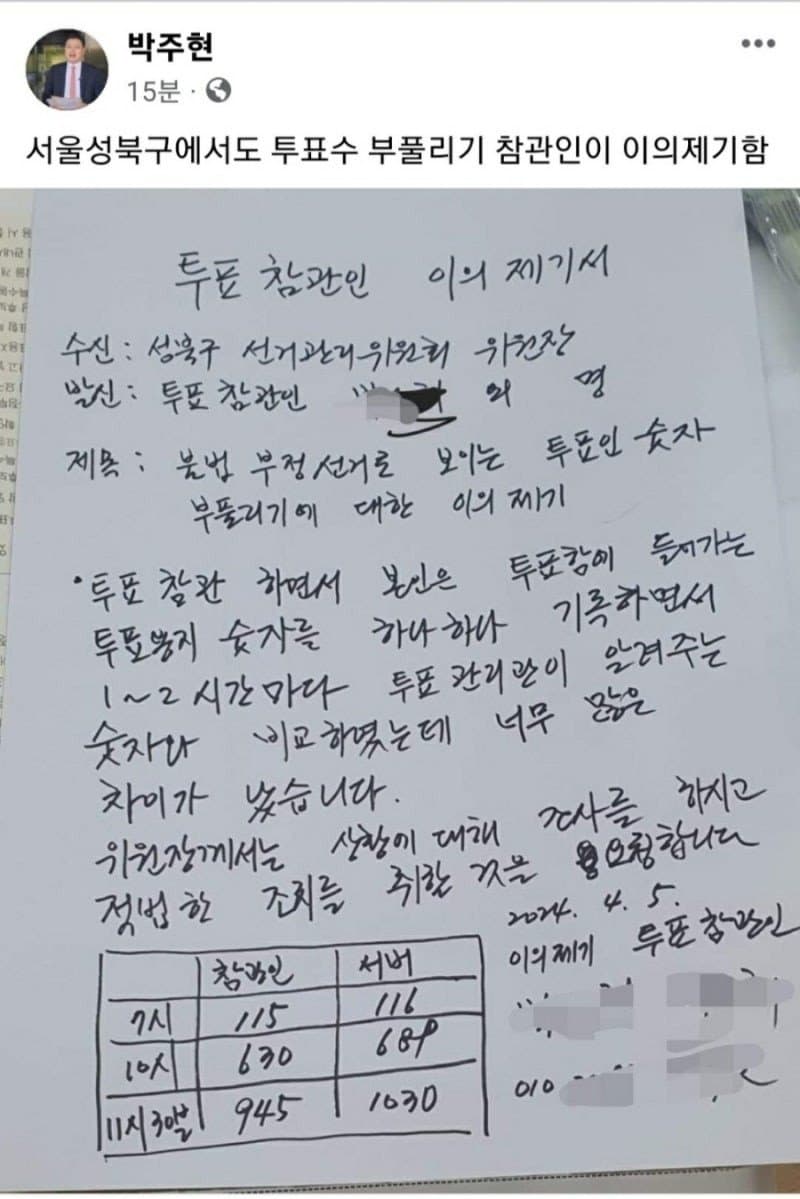 박주현
15분
서울성북구에서도 투표수 부풀리기 참관인이 이의제기함
투표 참관인 이의 제기서
수신 : 성북구 선거관리위원회 위원장
발신 : 투표 참관인 외 명
제목 : 불법 부정선거로 보이는 투표인 숫자
부풀리기에 대한 이의 제기
• 투표 참관 하면서 본인은 투표함에 들어가는
투표용지 숫자를 하나하나 기록하면서
1~2 시간마다 투표관리관이 알려주는
숫자와 비교하였는데 너무 많은
차이가 났습니다.
위원장께서는 상황에 대해 조사를 하시고
적법한 조치를 취할 것을 요청합니다
2024. 4. 5.
이의제기 투표참관인
010
참관인 서버
7시 115 116
10시 630 689
11시30분 945 1030